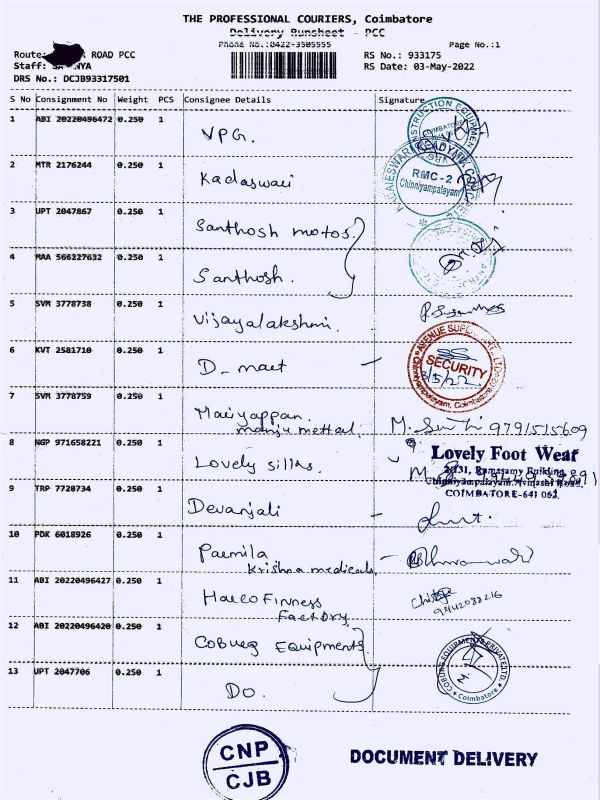 THE PROFESSIONAL COURIERS, Coimbatore
Delivery Runsheet - PCC
Phone No.:0422-3505555 Page No.:1
Route: ROAD PCC RS No.: 933175
Staff: RS Date: 03-May-2022
DRS No.: DCJB93317501
S No Consignment No Weight PCS Consignee Details Signature
1 ABI 20220496472 0.250 1 VPG.
2 MTR 2176244 0.250 1 Kadaswari
RMC-2
Chinniyampalayam
3 UPT 2047867 0.250 1 Santhosh motos.
4 MAA 566227632 0.250 1 Santhosh.
5 SVM 3778738 0.250 1 Vijayalakshmi.
6 KVT 2581710 0.250 1 D_mart -
AVENUE SUPER LTD
SECURITY
3/5/22
7 SVM 3778759 0.250 1 Mariyappan.
manju mettal. 9791515609
8 NGP 971658221 0.250 1 Lovely sillas.
Lovely Foot Wear
Ramasamy Building,
Chinniyampalayam, Avinashi Road,
COIMBATORE-641 062.
9 TRP 7720734 0.250 1 Devanjali -
10 PDK 6018926 0.250 1 Paemila -
Krishna medicals.
11 ABI 20220496427 0.250 1 Harco Finness
Factory. 9442088216
12 ABI 20220496420 0.250 1 Coburg Equipments
13 UPT 2047706 0.250 1 Do.
EQUIPMENTS PRIVATE LTD
Coimbatore
CNP
CJB
DOCUMENT DELIVERY